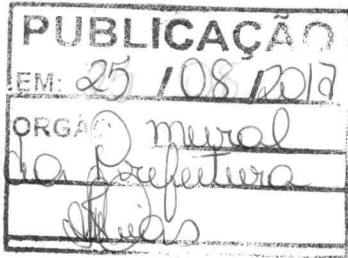 PUBLICAÇÃO
EM: 25 / 08 / 2017
ORGÃO mural
da Prefeitura